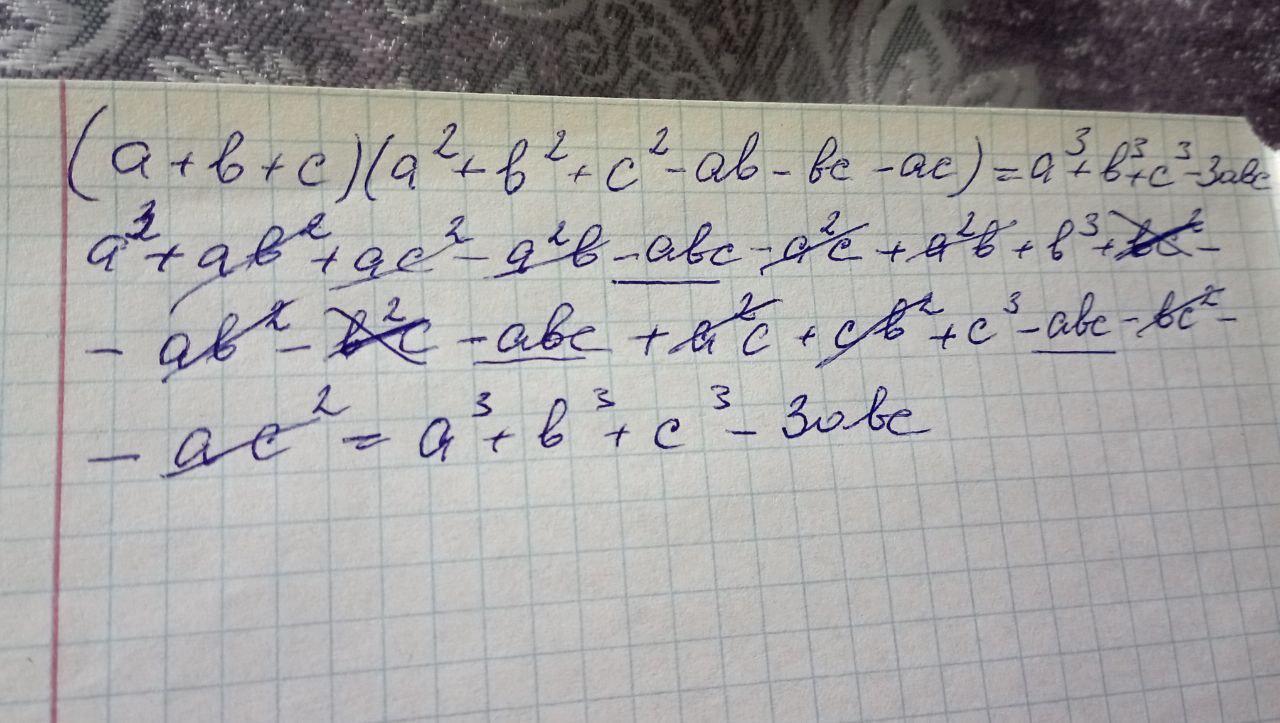 (a+b+c)(a²+b²+c²-ab-bc-ac)=a³+b³+c³-3abc
a³+ab²+ac²-a²b-abc-a²c+a²b+b³+bc²-
-ab²-b²c-abc+a²c+cb²+c³-abc-bc²-
-ac²=a³+b³+c³-3abc